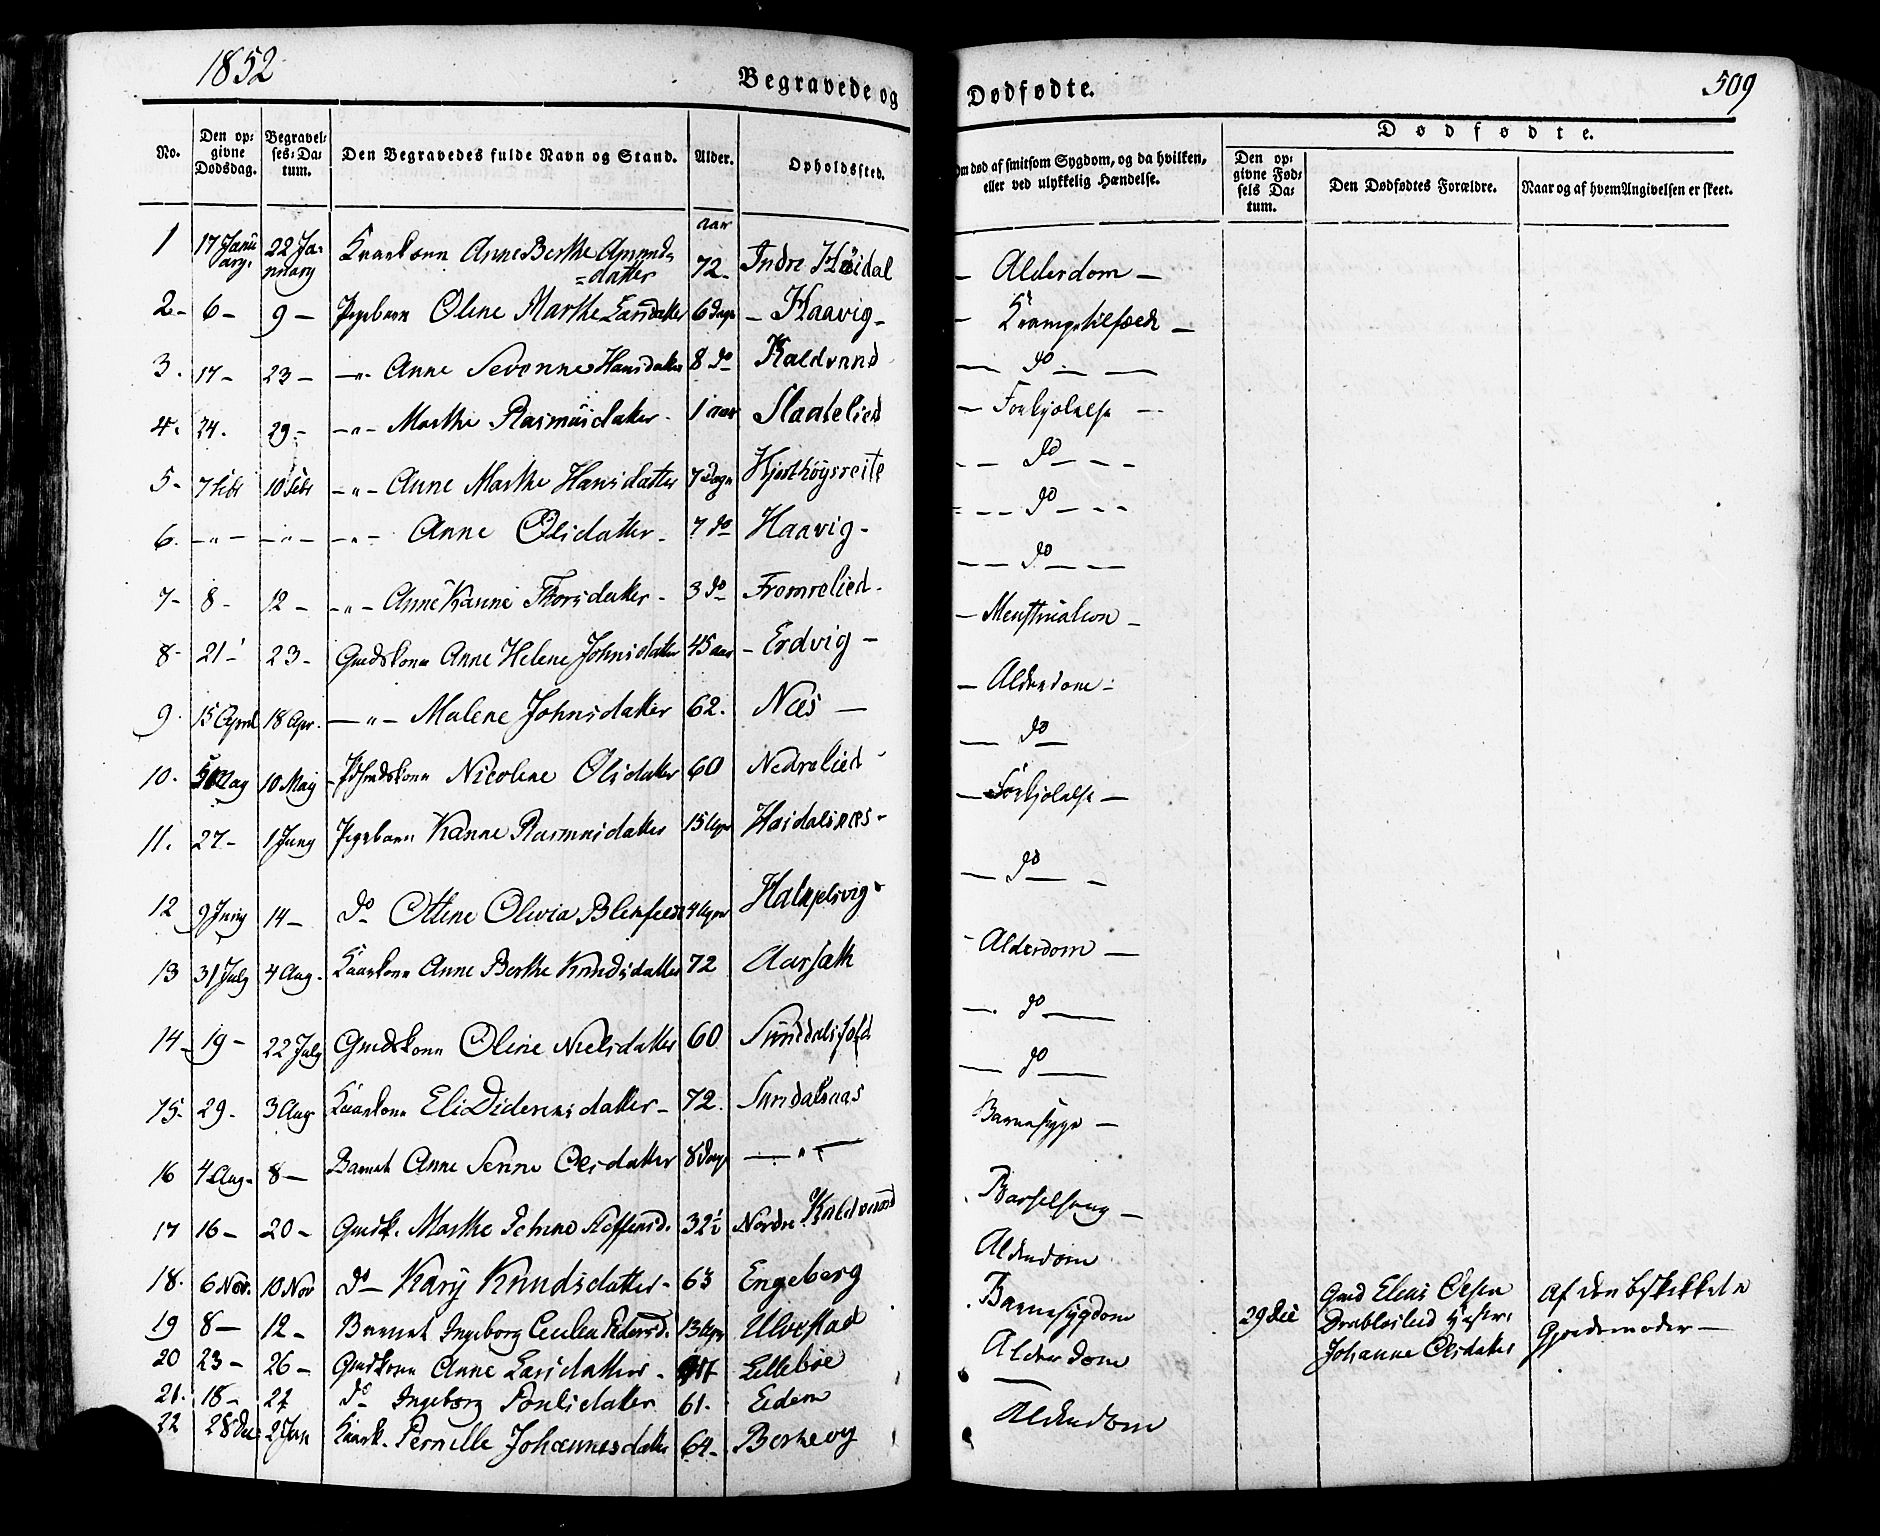 1852
Begravede og Dødfødte.
509
No.
Den opgivne Dødsdag.
Begravelses-Datum.
Den Begravedes fulde Navn og Stand.
Alder.
Opholdssted.
Om død af smitsom Sygdom, og da hvilken, eller ved ulykkelig Hændelse.
Dødfødte.
Den opgivne Fødsels Datum.
Den Dødfødtes Forældre.
Naar og af hvem Angivelsen er skeet.
1 17 Januarg. 22 January Kaarkonn Anne Berthe Amundsdatter aar 72- Indre Høidal - Alderdom -
2- 6- 9- Pigebarn Oline Marthe Larsdatter 6 Dage - Haavig - - Krampetilfælde -
3. 17- 23- -"- Anne Sevonne Hansdatter 8 do Kaldvand - do -
4. 24. 29- -"- Marthe Rasmusdatter - 1 aar Slaatelied - Forkjølelse -
5- 7 Febr 10 Febr -"- Anne Marthe Hansdatter 7 Dage Hjorthøgsreite - do -
6. -"- -"- -"- Anne Olsdatter - 7 do Haavig - - do -
7- 8- 12- -"- Anne Kanne Thorsdatter - 3 do Fremrelied - - do -
8- 21- 23- Gmdskone Anne Helene Johnsdatter 45 aar - Erdvig - - Menstruation -
9. 15 April 18 Apr. -"- Malene Johnsdatter 62. Næs - - Alderdom -
10. 5 May 10 May Nicoline Olsdatter 60 Nedrelied - do -
11. 27- 1 Juny Pigebarn Kanne Rasmusdatter 15 Uger Høidalsnæs - - Forkjølelse -
12 9 Juny 14- do Oline Olivia Blikfeldt 4 Uger Halkjelsvig - do -
13 31 July 4 Aug. Kaarkone Anne Berthe Knudsdatter 72 Aarsæth - Alderdom -
14- 19- 22 July Gmdskone Oline Nielsdatter 60 Sunddalsfold - do -
15- 29- 3 Aug Kaarkone Eli Didericksdatter - 72. Sundalsaas - do -
16 4 Aug. 8- Barnet Anne Serine Olsdatter 8 Dage -"- Barnesyge -
17 16- 20- Gmdk. Marthe Steffensd. 32½ Nordre Kaldvand Barselseng -
18. 6 Nov. 10 Nov do Kary Knudsdatter - 63 Engeberg Alderdom
19 8- 12- Barnet Ingeborg Cecilia Pedersd. 13 Uger Ulvestad Barnesygdom
20 23- 26- Gmdkone Anne Larsdatter - Lillebøe Alderdom
21. 18- 22 do Ingeborg Poulsdatter 61. Eidem -
22 28 Dec 2 Jan Kaark. Pernille Johannesdatter 64- Berkevg Alderdom
29 Dec
Gmd Elias Olsen
Drabloslied Hustru
Johanne Olsdatter
Af den beskikkede
Gjordemoder -